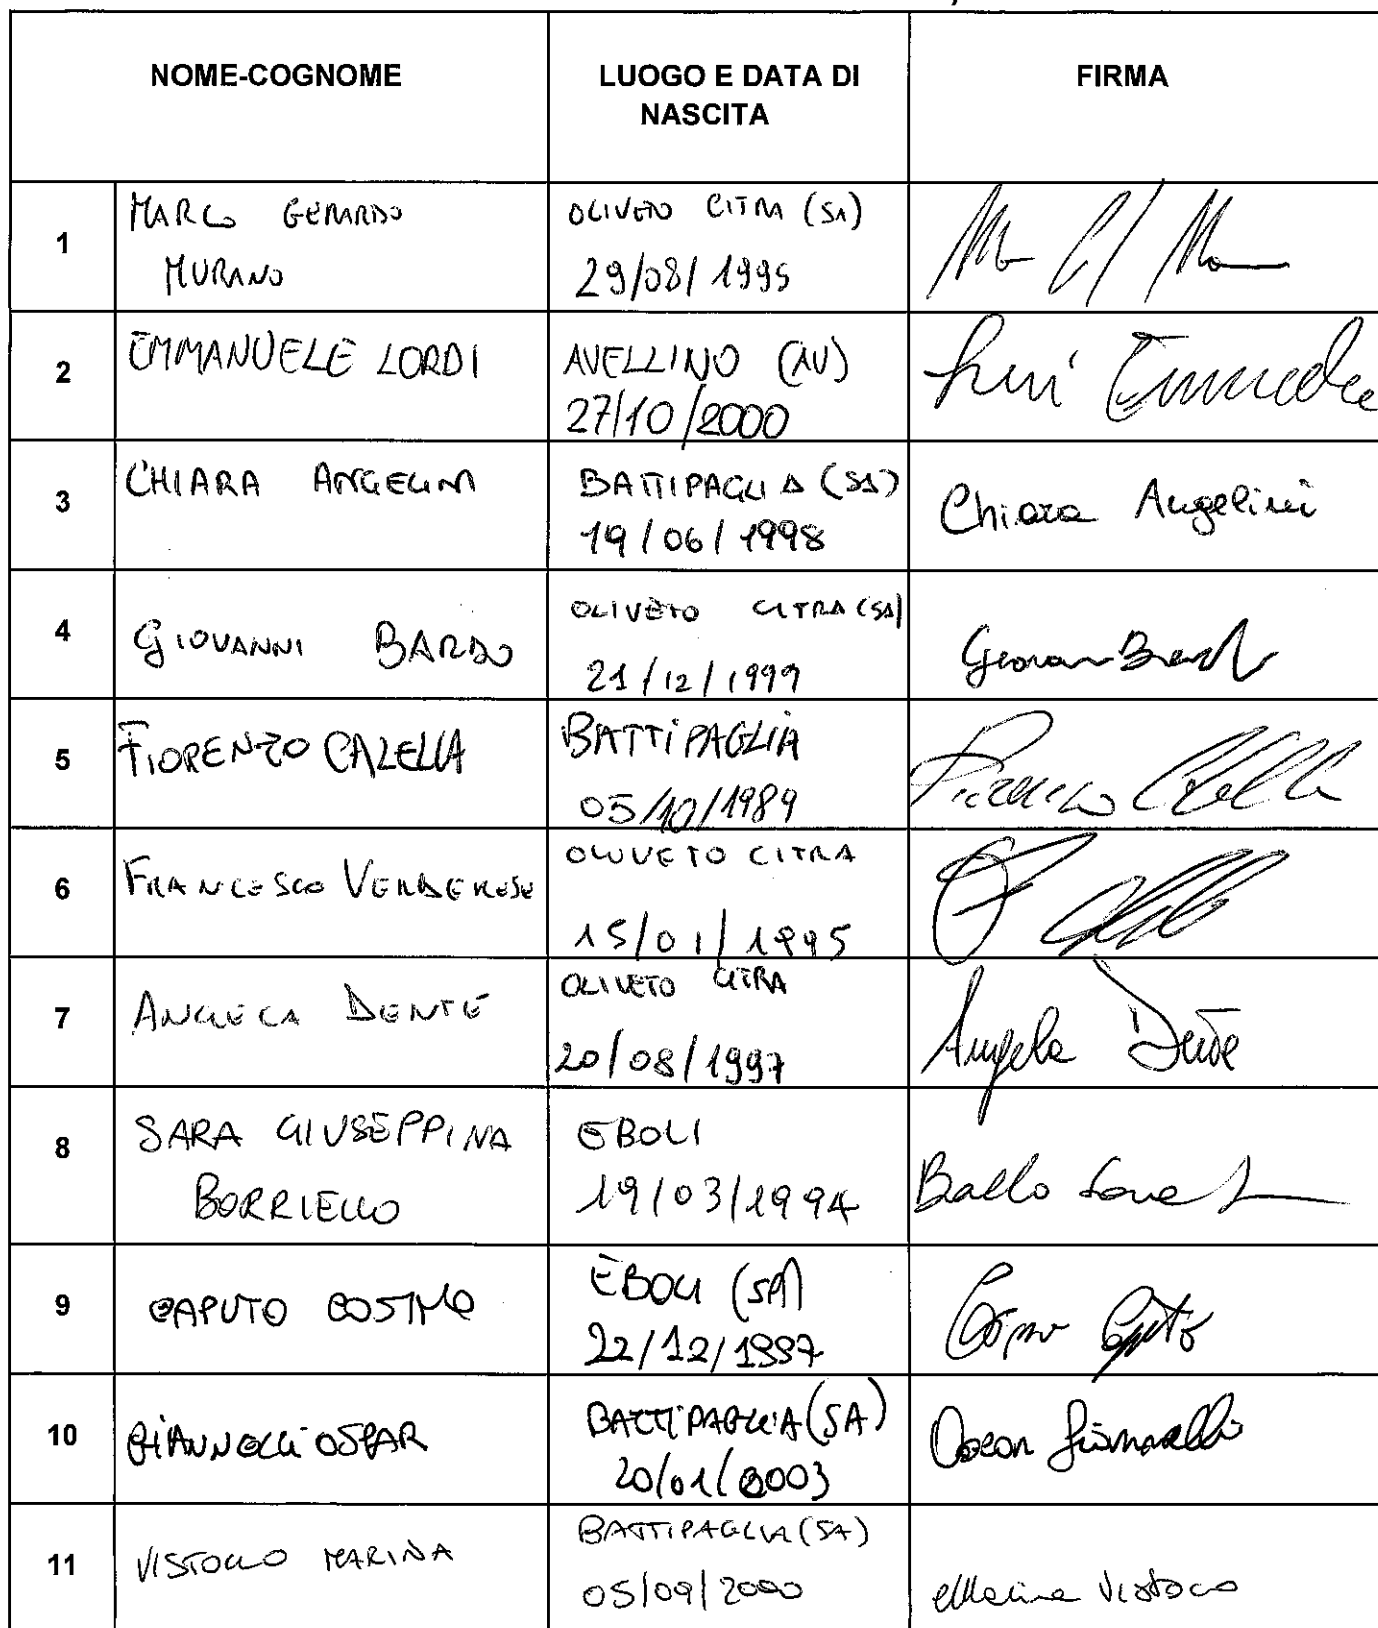 NOME-COGNOME
LUOGO E DATA DI
NASCITA
FIRMA
1
MARCO GERARDO
MURANO
OLIVETO CITRA (SA)
29/08/1995
2
EMMANUELE LORDI
AVELLINO (AV)
27/10/2000
3
CHIARA ANGELINI
BATTIPAGLIA (SA)
19/06/1998
Chiara Angelini
4
GIOVANNI BARDO
OLIVETO CITRA (SA)
21/12/1999
5
FIORENZO CALELLA
BATTIPAGLIA
05/10/1989
6
FRANCESCO VERDERESE
OLIVETO CITRA
15/01/1995
7
ANGELA DENTE
OLIVETO CITRA
20/08/1997
Angela Dente
8
SARA GIUSEPPINA
BORRIELLO
EBOLI
19/03/1994
9
CAPUTO COSIMO
EBOLI (SA)
22/12/1997
Cosimo Caputo
10
GIANNELLI OSCAR
BATTIPAGLIA (SA)
20/01/2003
Oscar Giannelli
11
VISTOCCO MARINA
BATTIPAGLIA (SA)
05/09/2000
Marina Vistocco